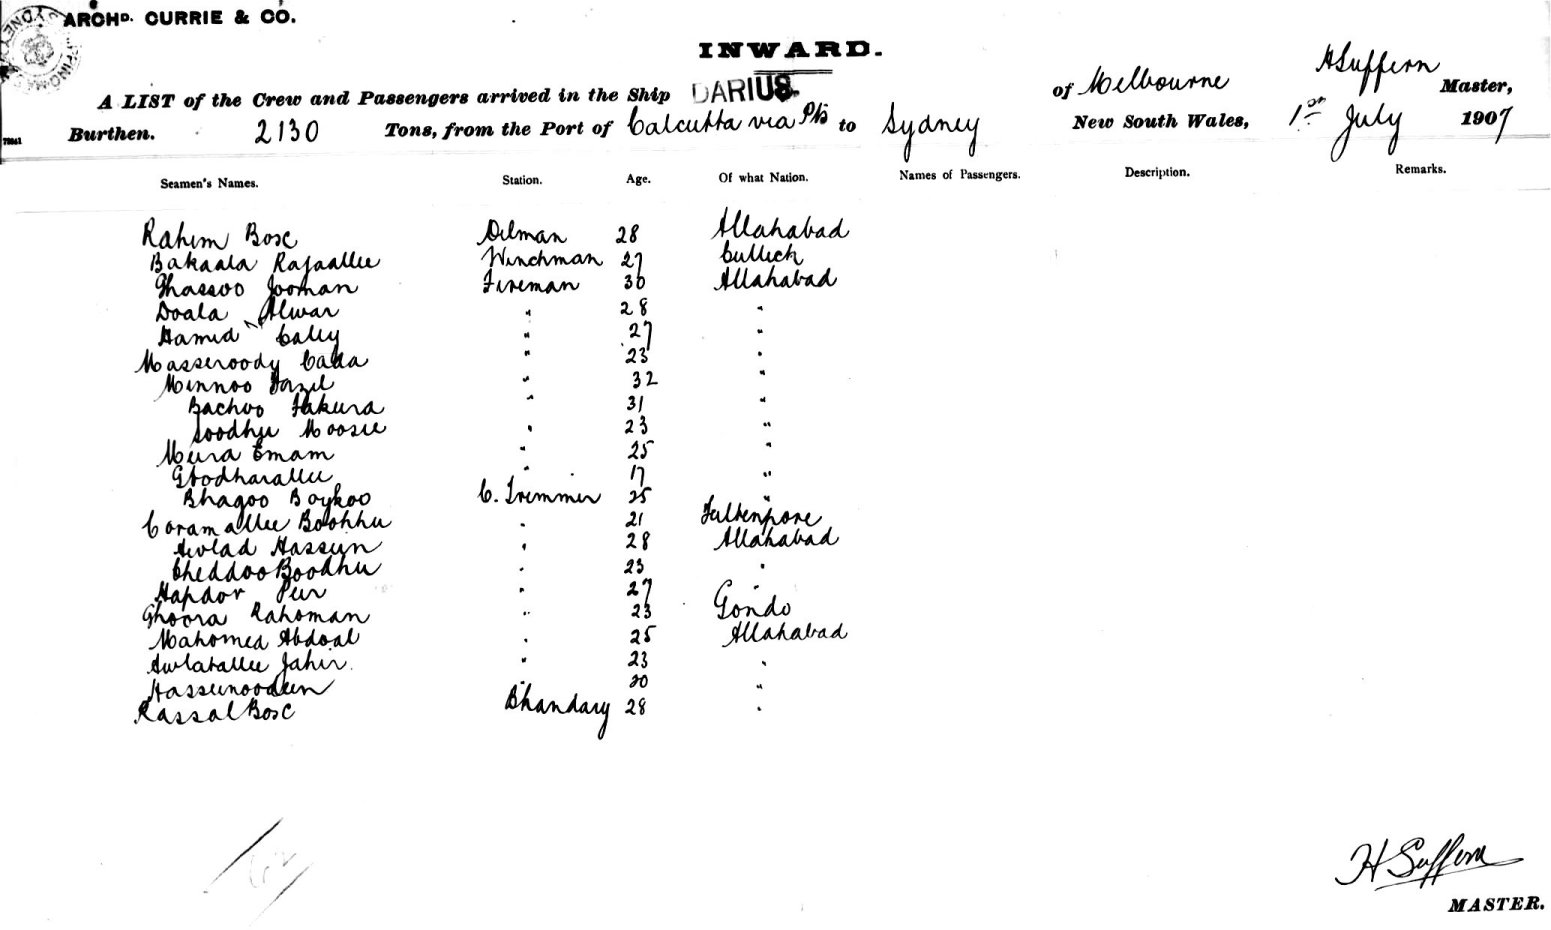 ARCHD. CURRIE & CO.
INWARD.
A LIST of the Crew and Passengers arrived in the Ship DARIUS. of Melbourne H Suffern Master,
Burthen. 2130 Tons, from the Port of Calcutta via Pts to Sydney New South Wales, 1st July 1907
Seamen's Names. Station. Age. Of what Nation. Names of Passengers. Description. Remarks.
Rahim Bosc Oilman 28 Allahabad
Bakaala Rajaallee Winchman 27 Cullick
Ghassoo Jooman Fireman 30 Allahabad
Doala Alwar " 28 "
Hamid Cally " 27 "
Masseroody Cada " 23 "
Minnoo Fazil " 32 "
Bachoo Fakura " 31 "
Soodhji Moosee " 23 "
Meera Emam " 25 "
" 17 "
Bhagoo Boykoo C. Trimmer 25 "
Coramallee Boohhu " 21 Fultenpore
Awlad Hasseen " 28 Allahabad
Cheddoo Boodhu " 23 "
Hapdor Peer " 27 "
Ghoora Rahoman " 23 Gondo
Mahomed Abdoal " 25 Allahabad
Awlatallee Jahir. " 23 "
Hasseenoodeen " 20 "
Rassal Bosc Bhandary 28 "
H Suffern
MASTER.